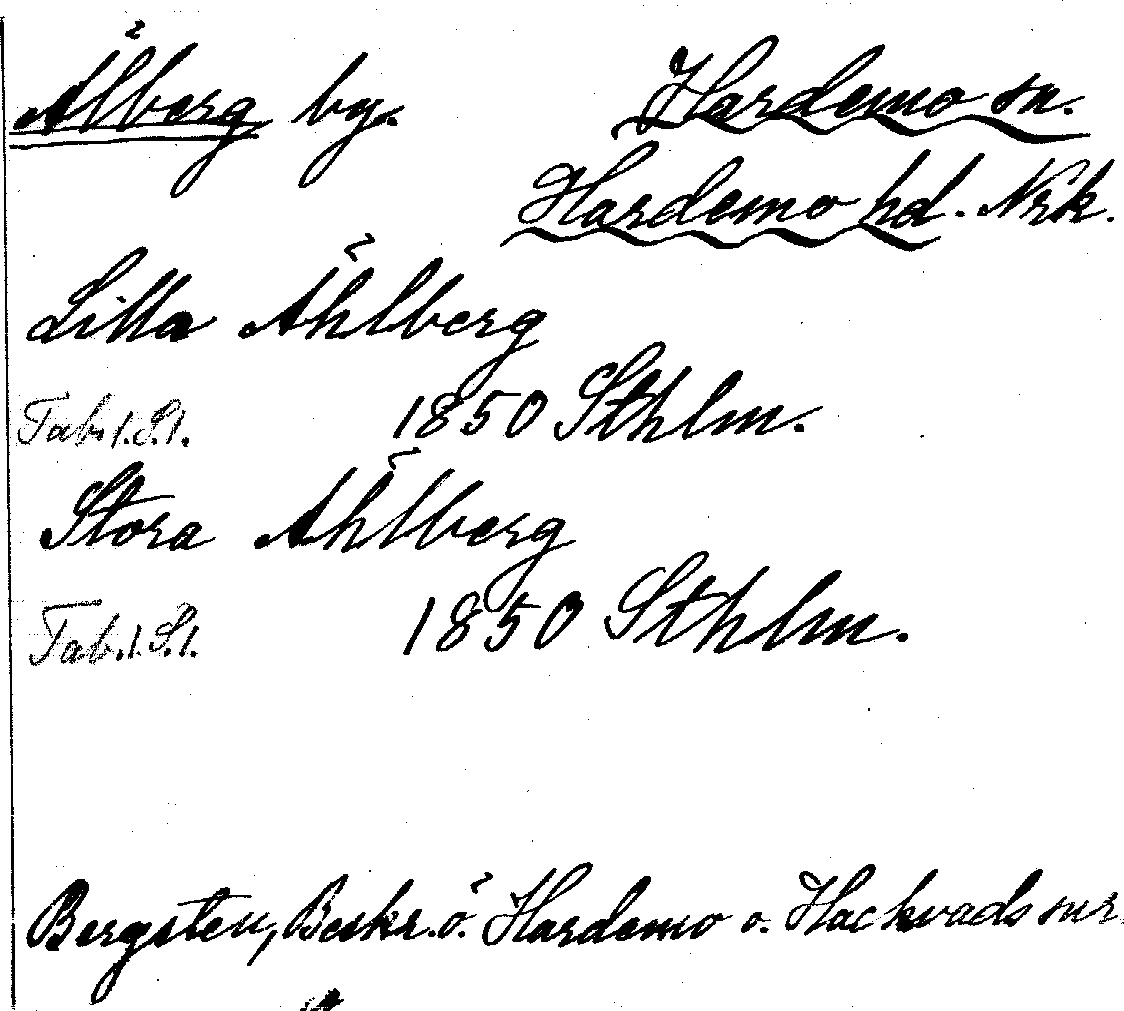 Ålberg by. Hardemo sn.
Hardemo hd. Nrk.
Lilla Åhlberg
Tab. 1. S. 1. 1850 Sthlm.
Stora Åhlberg
Tab. 1. S. 1. 1850 Sthlm.
Bergsten, Beskr. ö. Hardemo o. Hackvads snr